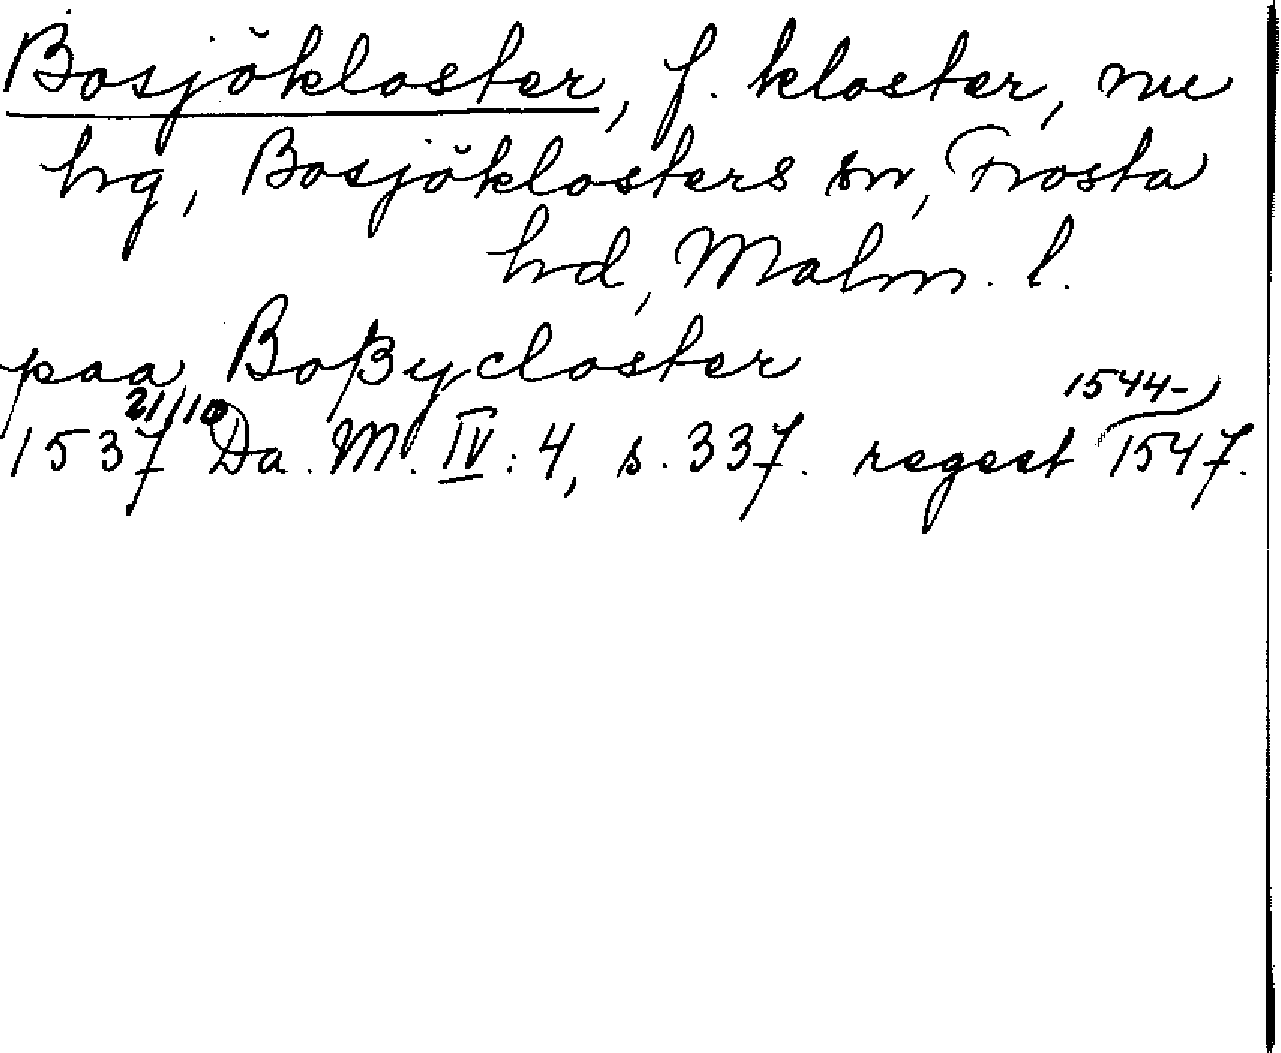 Bosjökloster, f. kloster, nu
hg, Bosjöklosters sn, Frosta
hd, Malm. l.
paa Boßycloster
1544-
21/10
1537 Da. M. IV: 4, s. 337. regest 1547.